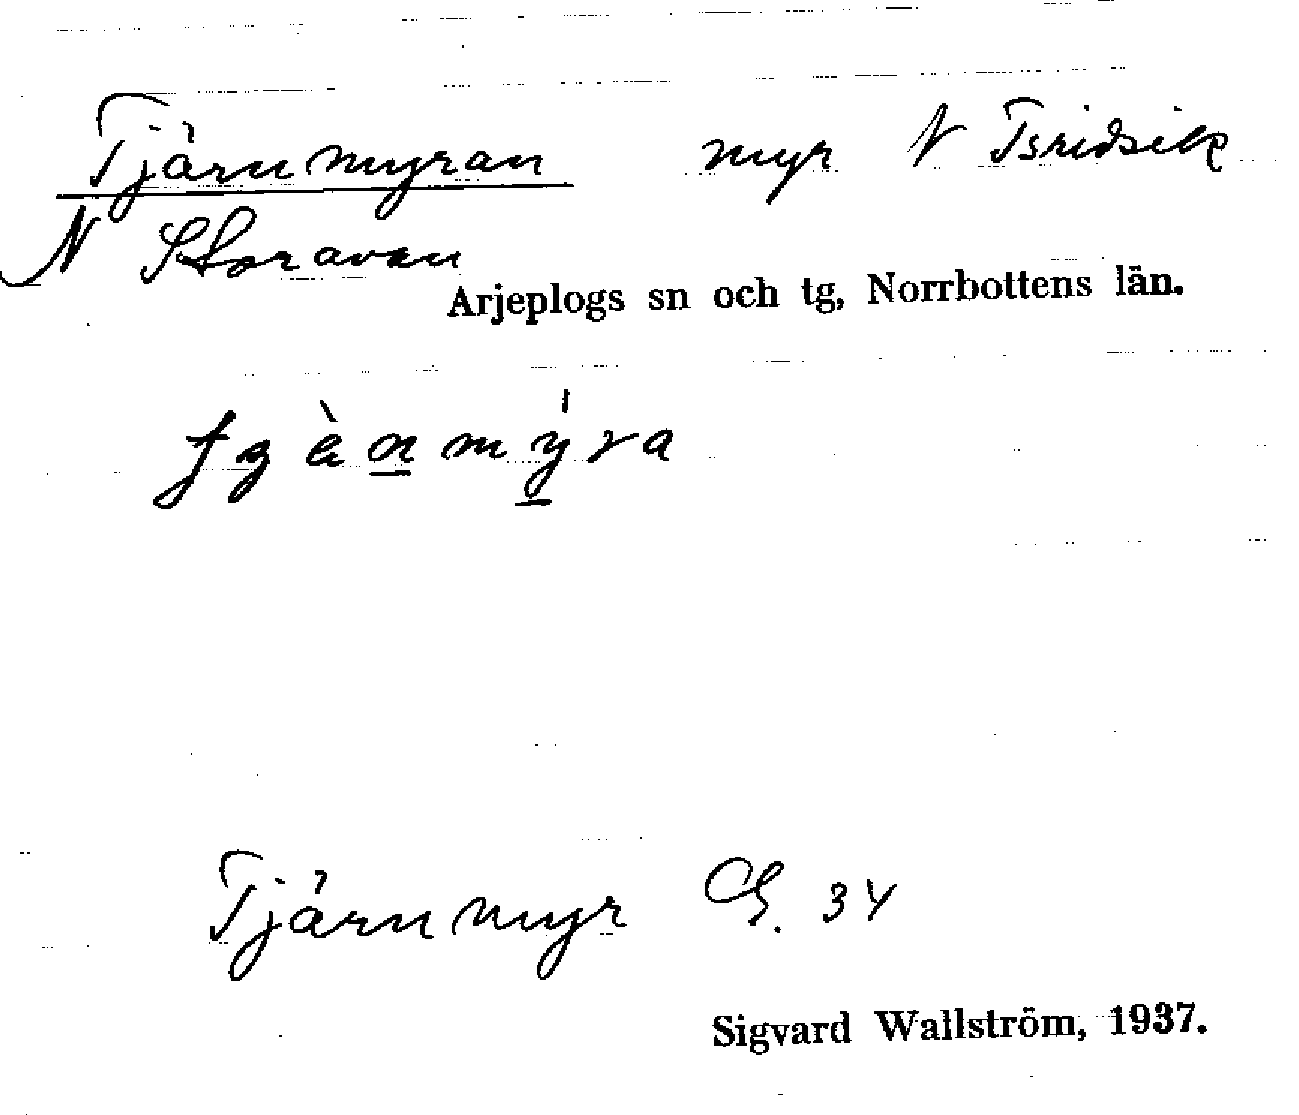 Tjärnmyran myr N Tsridsik
N Storavan
Arjeplogs sn och tg, Norrbottens län.
Tjärnmyr G. 34
Sigvard Wallström, 1937.